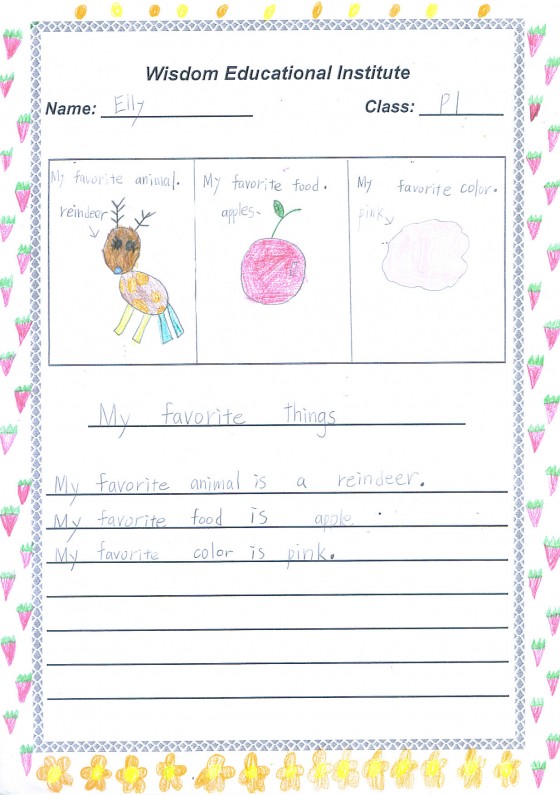 Wisdom Educational Institute
Name: Elly Class: P1
My favorite animal. My favorite food. My favorite color.
reindeer apples. pink
My favorite things
My favorite animal is a reindeer.
My favorite food is apple.
My favorite color is pink.